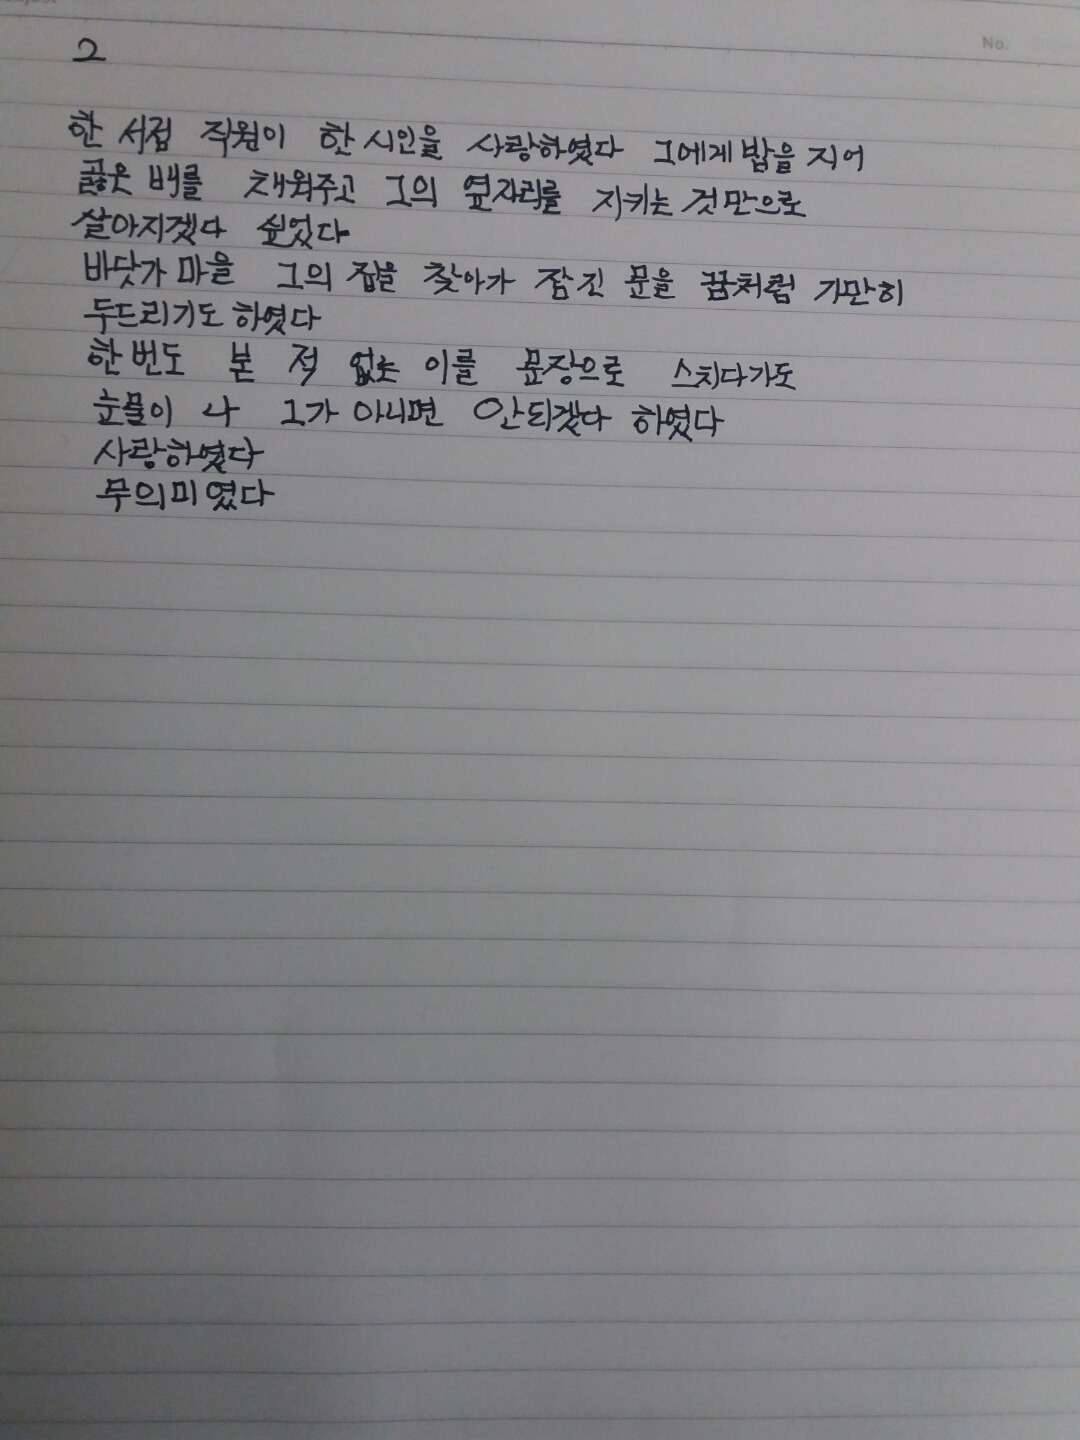 No.
2
한 서점 직원이 한 시인을 사랑하였다 그에게 밥을 지어
곯은 배를 채워주고 그의 옆자리를 지키는 것만으로
살아지겠다 싶었다
바닷가 마을 그의 집을 찾아가 잠긴 문을 꿈처럼 가만히
두드리기도 하였다
한번도 본 적 없는 이를 문장으로 스치다가도
눈물이 나 그가 아니면 안되겠다 하였다
사랑하였다
무의미였다